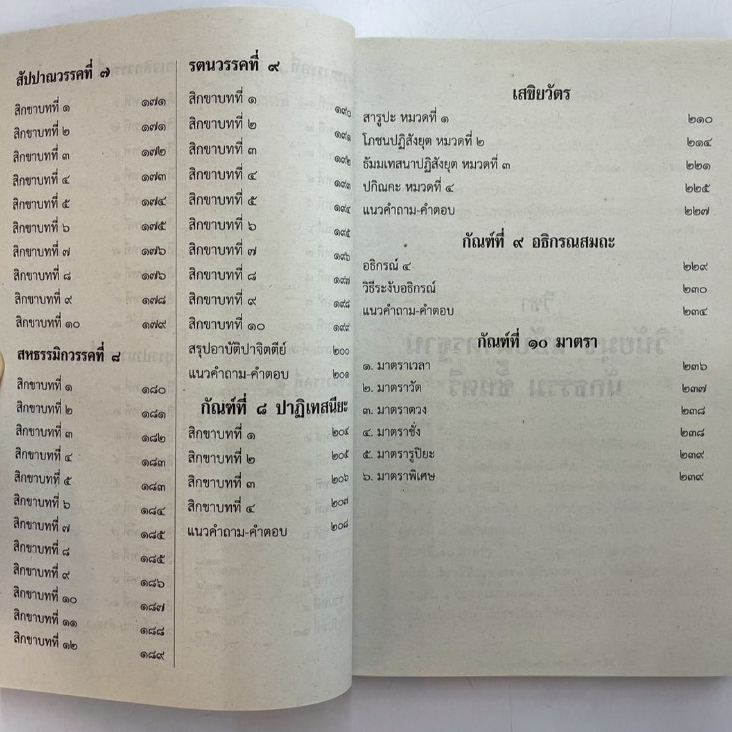 สัปปาณวรรคที่ ๗
สิกขาบทที่ ๑ ๑๗๑
สิกขาบทที่ ๒ ๑๗๑
สิกขาบทที่ ๓ ๑๗๒
สิกขาบทที่ ๔ ๑๗๓
สิกขาบทที่ ๕ ๑๗๔
สิกขาบทที่ ๖ ๑๗๕
สิกขาบทที่ ๗ ๑๗๖
สิกขาบทที่ ๘ ๑๗๖
สิกขาบทที่ ๙ ๑๗๘
สิกขาบทที่ ๑๐ ๑๗๙
สหธรรมิกวรรคที่ ๘
สิกขาบทที่ ๑ ๑๘๐
สิกขาบทที่ ๒ ๑๘๑
สิกขาบทที่ ๓ ๑๘๒
สิกขาบทที่ ๔ ๑๘๓
สิกขาบทที่ ๕ ๑๘๓
สิกขาบทที่ ๖ ๑๘๔
สิกขาบทที่ ๗ ๑๘๕
สิกขาบทที่ ๘ ๑๘๕
สิกขาบทที่ ๙ ๑๘๖
สิกขาบทที่ ๑๐ ๑๘๗
สิกขาบทที่ ๑๑ ๑๘๘
สิกขาบทที่ ๑๒ ๑๘๙
รตนวรรคที่ ๙
สิกขาบทที่ ๑ ๑๙๐
สิกขาบทที่ ๒ ๑๙๑
สิกขาบทที่ ๓ ๑๙๒
สิกขาบทที่ ๔ ๑๙๓
สิกขาบทที่ ๕ ๑๙๔
สิกขาบทที่ ๖ ๑๙๕
สิกขาบทที่ ๗ ๑๙๖
สิกขาบทที่ ๘ ๑๙๗
สิกขาบทที่ ๙ ๑๙๘
สิกขาบทที่ ๑๐ ๑๙๙
สรุปอาบัติปาจิตตีย์ ๒๐๐
แนวคำถาม-คำตอบ ๒๐๑
กัณฑ์ที่ ๘ ปาฏิเทสนียะ
สิกขาบทที่ ๑ ๒๐๔
สิกขาบทที่ ๒ ๒๐๕
สิกขาบทที่ ๓ ๒๐๖
สิกขาบทที่ ๔ ๒๐๗
แนวคำถาม-คำตอบ ๒๐๘
เสขิยวัตร
สารูปะ หมวดที่ ๑ ๒๑๐
โภชนปฏิสังยุต หมวดที่ ๒ ๒๑๔
ธัมมเทสนาปฏิสังยุต หมวดที่ ๓ ๒๒๑
ปกิณคะ หมวดที่ ๔ ๒๒๕
แนวคำถาม-คำตอบ ๒๒๗
กัณฑ์ที่ ๙ อธิกรณสมถะ
อธิกรณ์ ๔ ๒๒๙
วิธีระงับอธิกรณ์ ๒๓๐
แนวคำถาม-คำตอบ ๒๓๔
กัณฑ์ที่ ๑๐ มาตรา
๑. มาตราเวลา ๒๓๖
๒. มาตราวัด ๒๓๗
๓. มาตราตวง ๒๓๘
๔. มาตราชั่ง ๒๓๘
๕. มาตรารูปิยะ ๒๓๙
๖. มาตราพิเศษ ๒๓๙